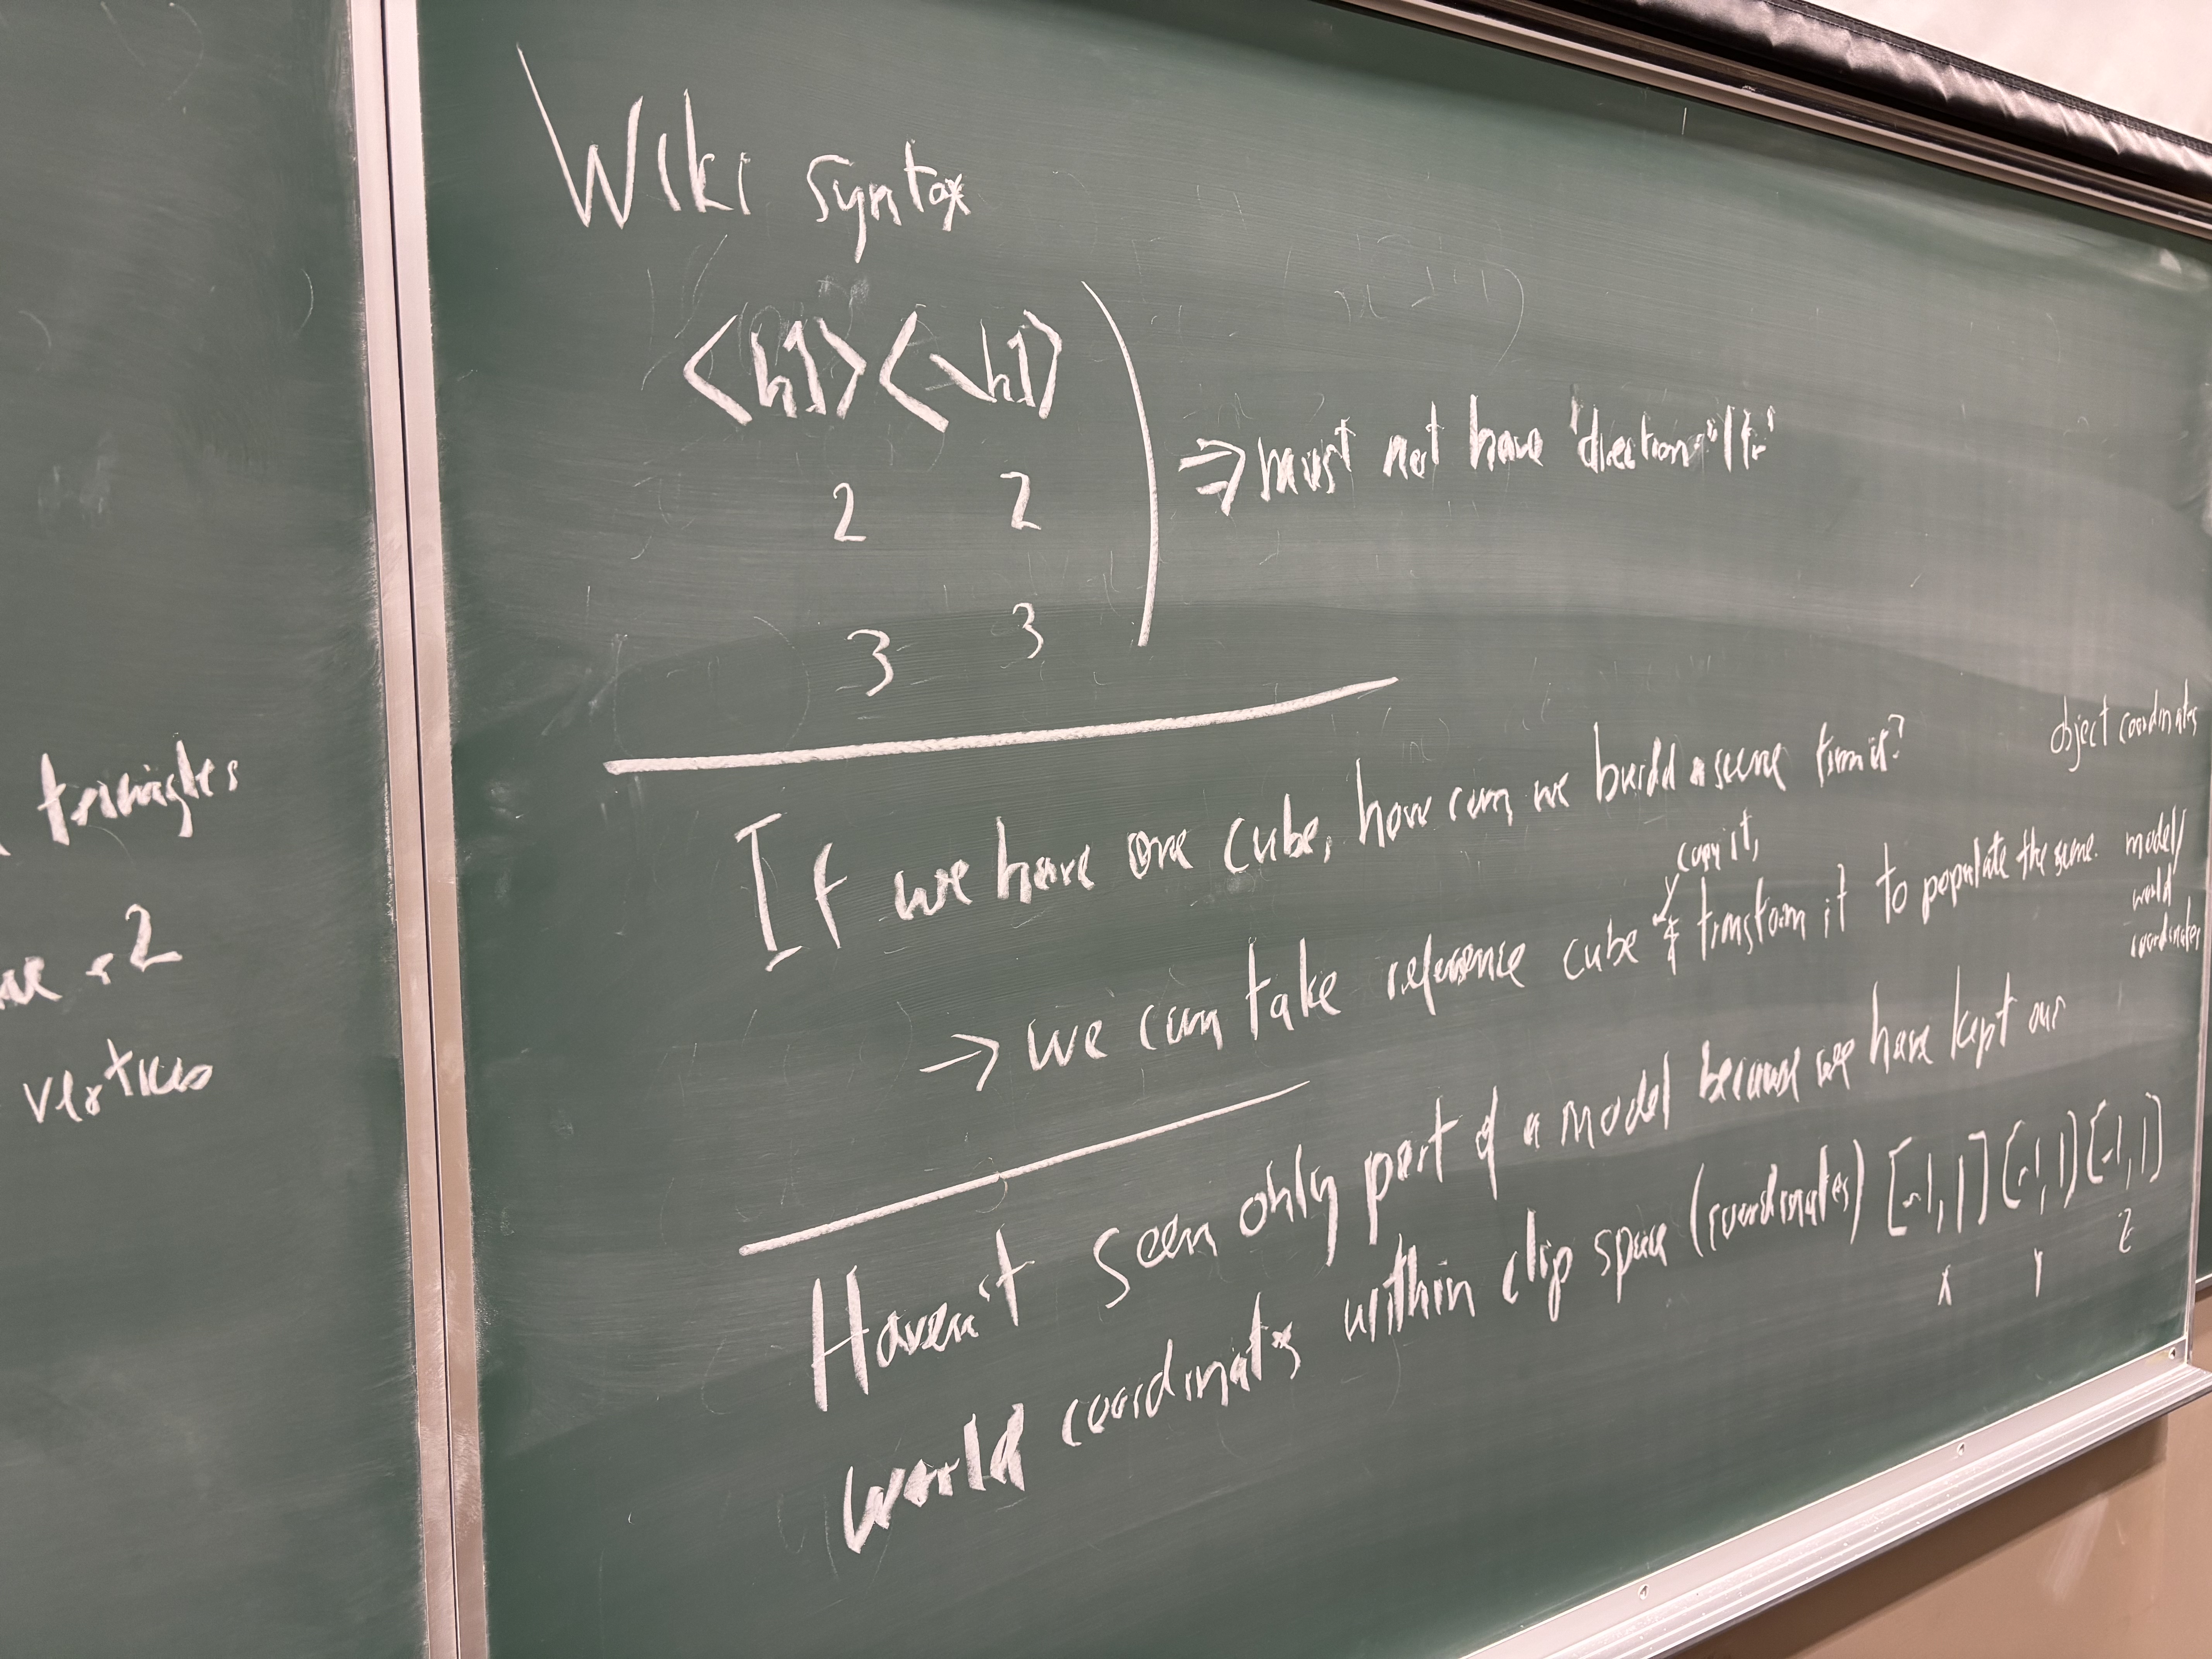 triangles
+2
vertices
Wiki syntax
<h1><\h1>
2 2
3 3
⇒ must not have 'direction="ltr'
If we have one cube, how can we build a scene from it?
object coordinates
copy it,
→ we can take reference cube & transform it to populate the scene.
model/
world
coordinates
Haven't seen only part of a model because we have kept our
world coordinates within clip space (coordinates) [-1,1] [-1,1] [-1,1]
X Y Z